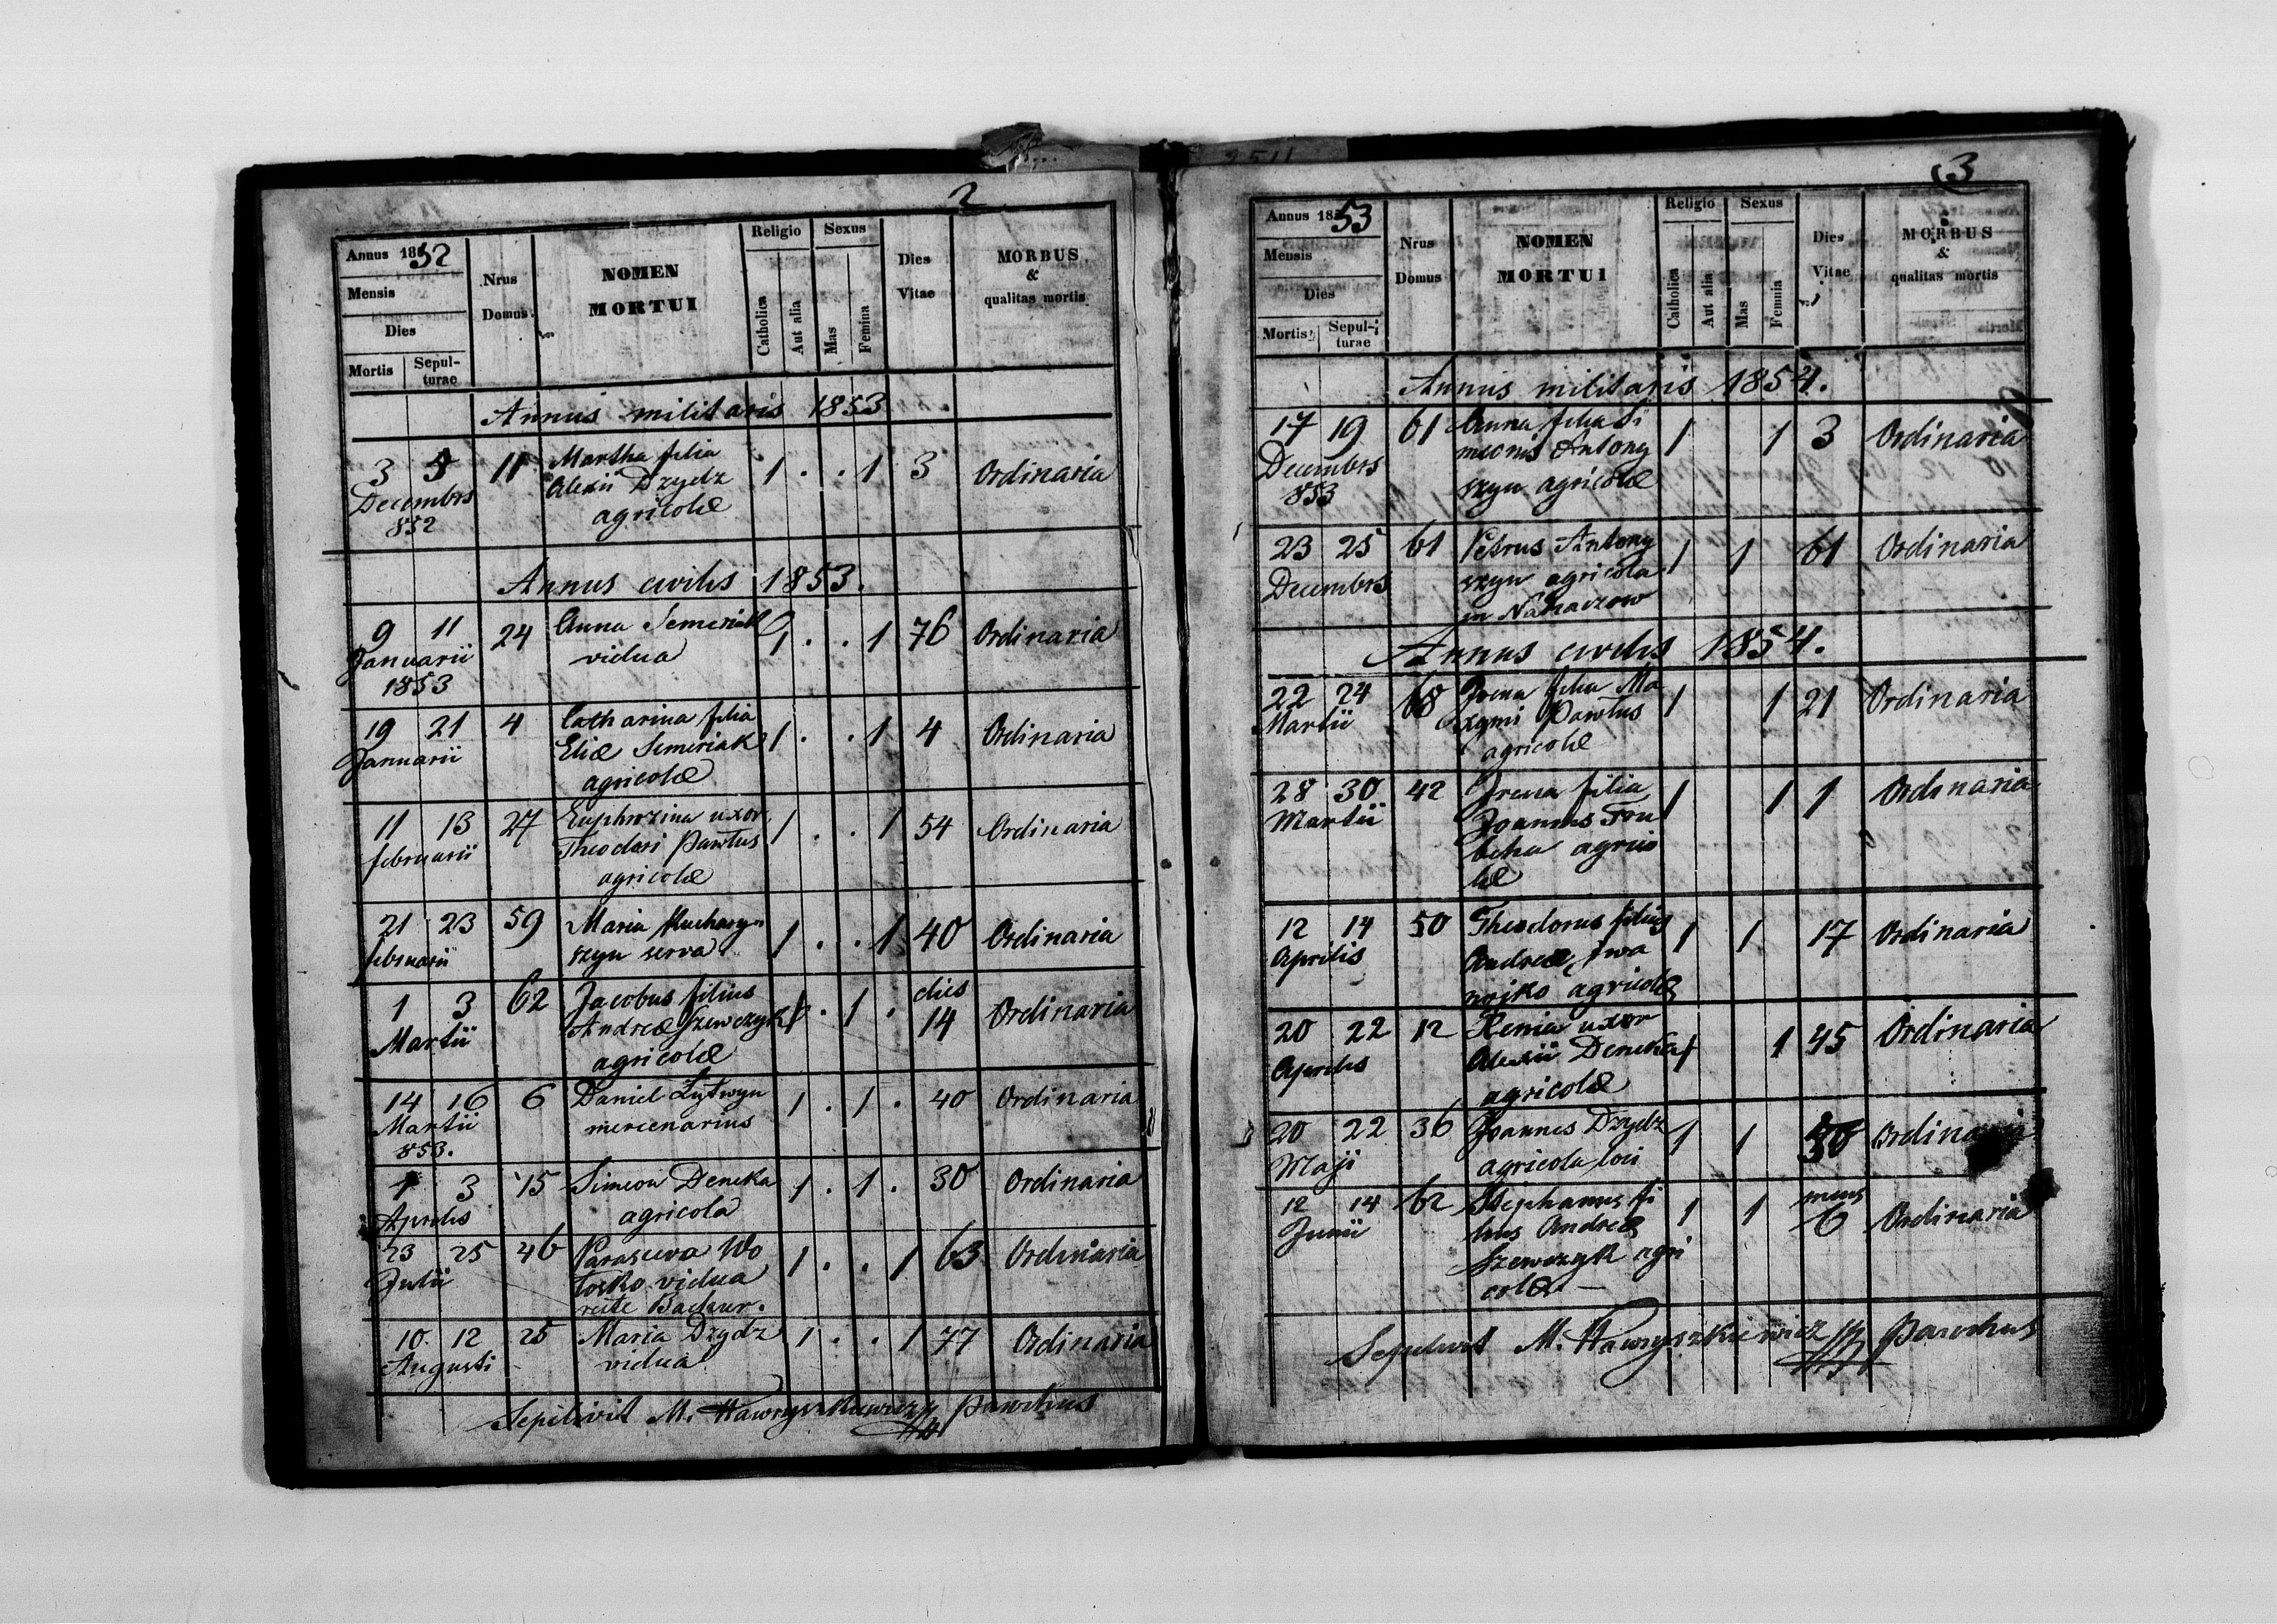 2
Annus 1852
Mensis
Dies
Mortis
Sepul-
turae
Nrus
Domus.
NOMEN
MORTUI
Religio
Catholica
Aut alia
Sexus
Mas
Femina
Dies
Vitae
MORBUS
&
qualitas mortis
Annus militaris 1853
3 5 11 Martha filia 1 . . 1 3 Ordinaria
Decembrs Alexii Dzydz
852 agricolæ
Annus civilis 1853.
9 11 24 Anna Semeriak 1 . . 1 76 Ordinaria
Januarii vidua
1853
19 21 4 Catharina filia 1 . . 1 4 Ordinaria
Januarii Eliæ Semeriak
agricolæ
11 13 27 Euphrozina uxor 1 . . 1 54 Ordinaria
februarii Theodori Pawlus
agricolæ
21 23 59 Maria 1 . . 1 40 Ordinaria
februarii szyn serva
1 3 62 Jacobus filius 1 . 1 . dies 14 Ordinaria
Martii Andreæ Szewczyk
agricolæ
14 16 6 Daniel Lytwyn 1 . 1 . 40 Ordinaria
Martii mercenarius
853.
1 3 15 Simeon Deneka 1 . 1 . 30 Ordinaria
Aprilis agricola
23 25 46 Parasceva Wo 1 . . 1 63 Ordinaria
Julii łosko vidua
recte
10. 12 25 Maria Dzydz 1 . . 1 77 Ordinaria
Augusti vidua
Sepelivit M. Hawryszkiewicz Parochus
3
Annus 1853
Mensis
Dies
Mortis
Sepul-
turae
Nrus
Domus
NOMEN
MORTUI
Religio
Catholica
Aut alia
Sexus
Mas
Femnia
Dies
Vitae
MORBUS
&
qualitas mortis
Annus militaris 1854.
17 19 61 Anna filia Si 1 1 3 Ordinaria
Decembrs meonis Antony
853 szyn agricolæ
23 25 61 Petrus Antony 1 1 61 Ordinaria
Decembrs szyn agricola
in Nahaczow
Annus civilis 1854.
22 24 68 Irena filia Ma 1 1 21 Ordinaria
Martii xymi Pawlus
agricolæ
28 30 42 Irena filia 1 1 1 Ordinaria
Martii Joannis Tru
agrico
læ
12 14 50 Theodorus filius 1 1 17 Ordinaria
Aprilis Andreæ Iwa
nojko agricolæ
20 22 12 Xenia uxor 1 1 45 Ordinaria
Aprilis Alexii Deneka
agricolæ
20 22 36 Joannes Dzydz 1 1 Ordinaria
Maji agricola loci
12 14 62 Stephanus fi 1 1 mens 6 Ordinaria
Junii lius Andreæ
Szewczyk agri
colæ —
Sepelivit M. Hawryszkiewicz Parochus